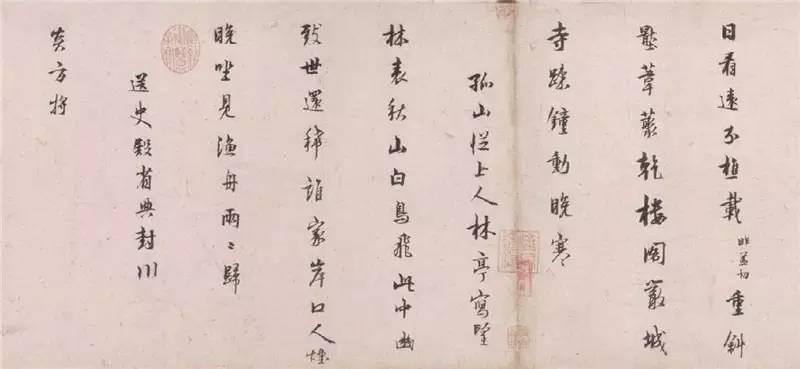 日看遠分樵載重斜
壓葦叢乾樓閣嚴城
寺踈鐘動晚寒
孤山從上人林亭寫望
林表秋山白鳥飛此中幽
致世還稀誰家岸口人煙
晚坐見漁舟兩〻歸
送史殿省典封川
炎方將